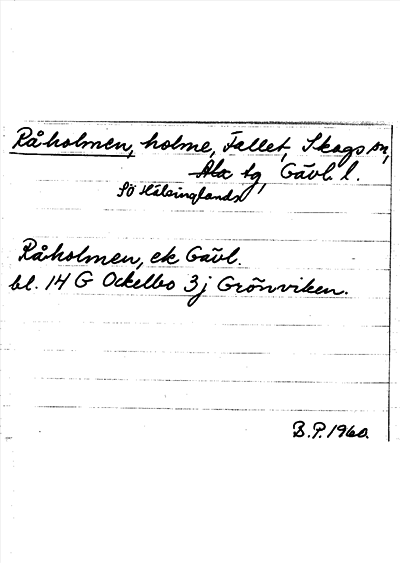 Råholmen, holme, Fallet, Skogs sn,
Ala tg, Gävl. l.
Sö Hälsinglands
Råholmen, ek Gävl.
bl. 14 G Ockelbo 3j Grönviken.
B.P. 1960.